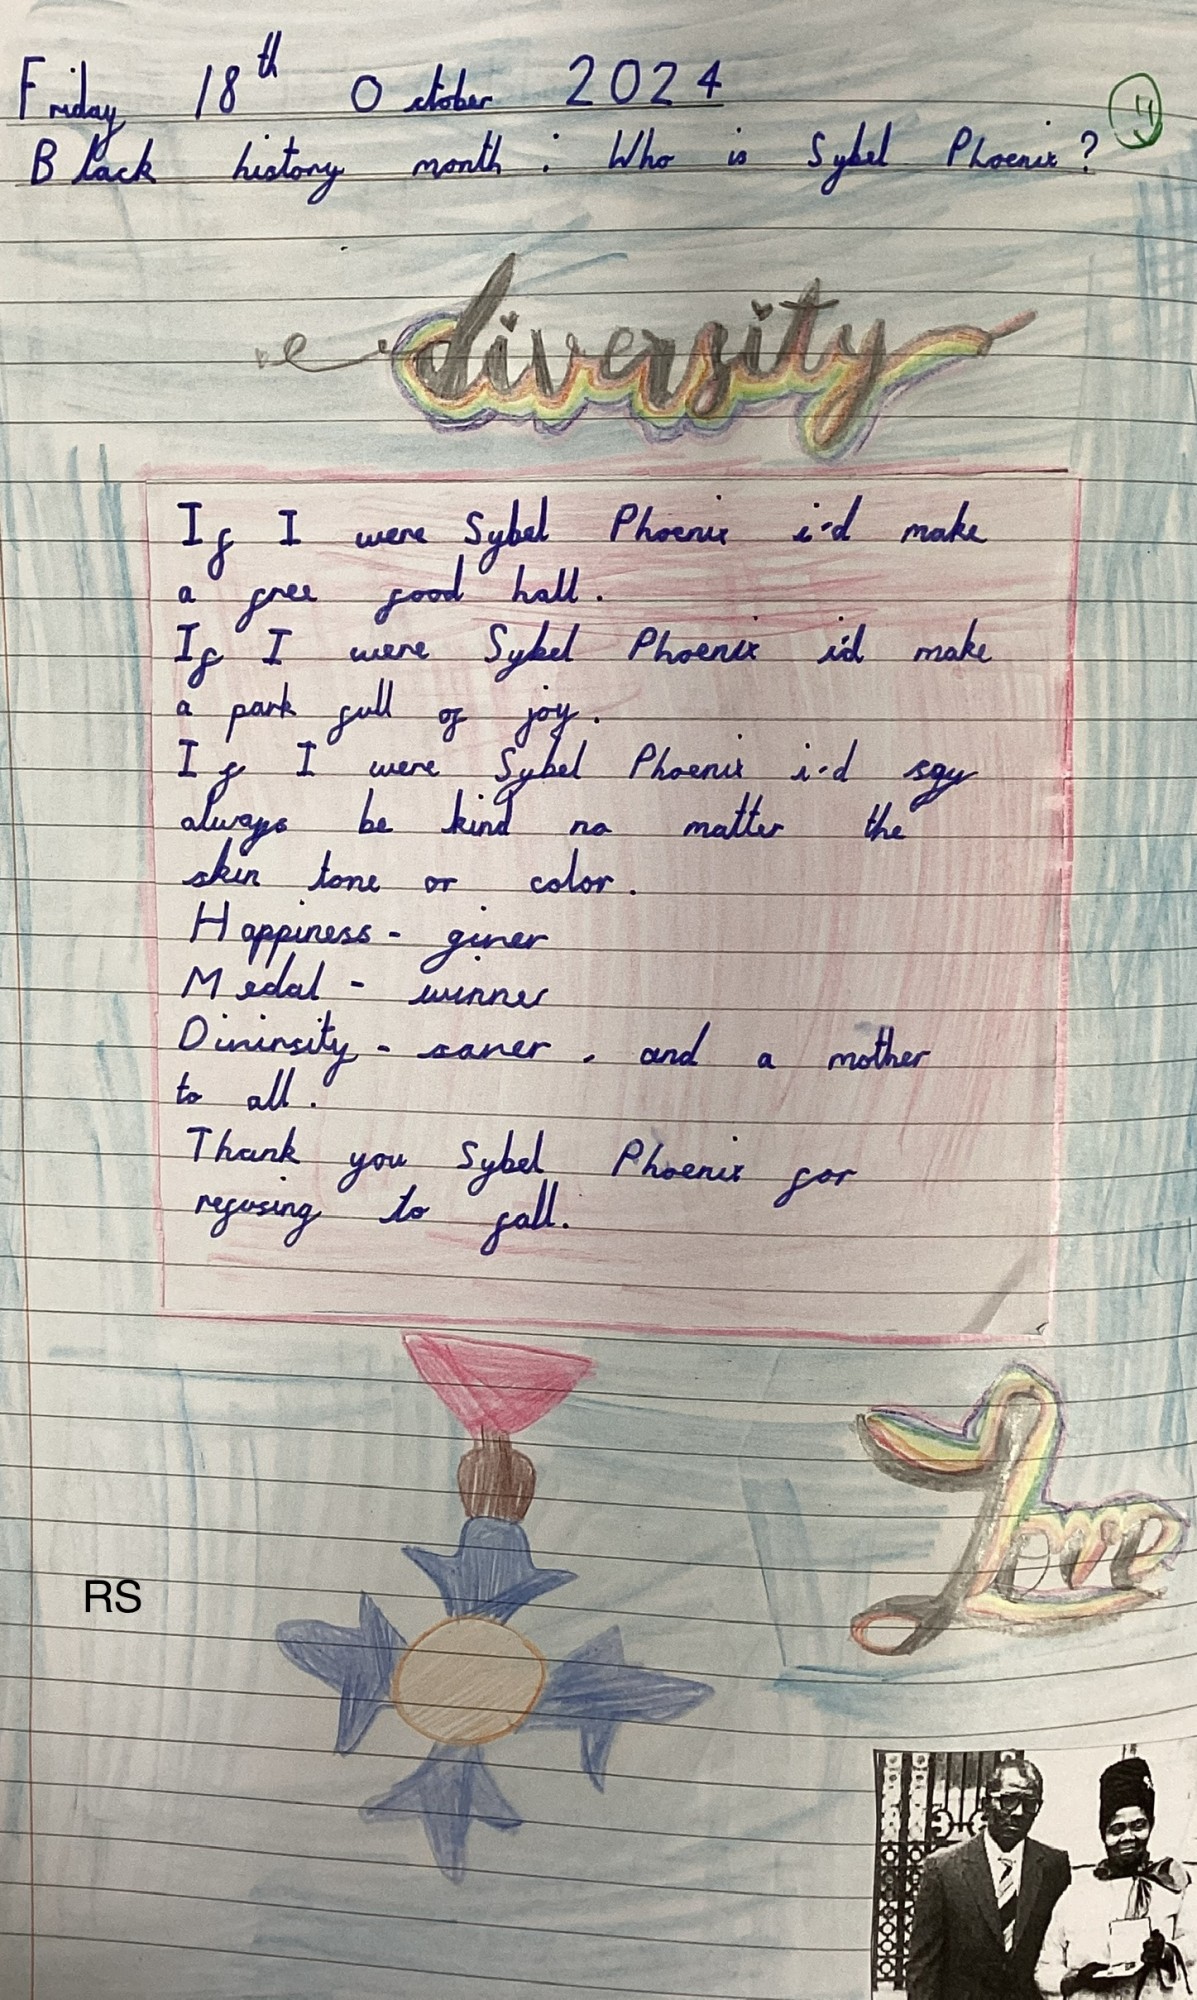 Friday 18th October 2024
Black history month: Who is Sybel Phoenix?
diversity
If I were Sybel Phoenix i'd make
a free food hall.
If I were Sybel Phoenix i'd make
a park full of joy.
If I were Sybel Phoenix i'd say
always be kind no matter the
skin tone or color.
Happiness - giver
Medal - winner
Diversity - saver, and a mother
to all.
Thank you Sybel Phoenix for
refusing to fall.
Love
RS